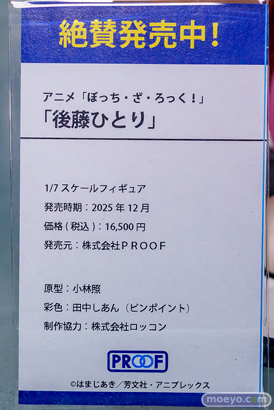 絶賛発売中!
アニメ「ぼっち・ざ・ろっく!」
「後藤ひとり」
1/7 スケールフィギュア
発売時期:2025 年 12 月
価格 ( 税込 ):16,500 円
発売元:株式会社PROOF
原型:小林照
彩色:田中しあん(ピンポイント)
制作協力:株式会社ロッコン
PROOF
©はまじあき/芳文社・アニプレックス
moeyo.com